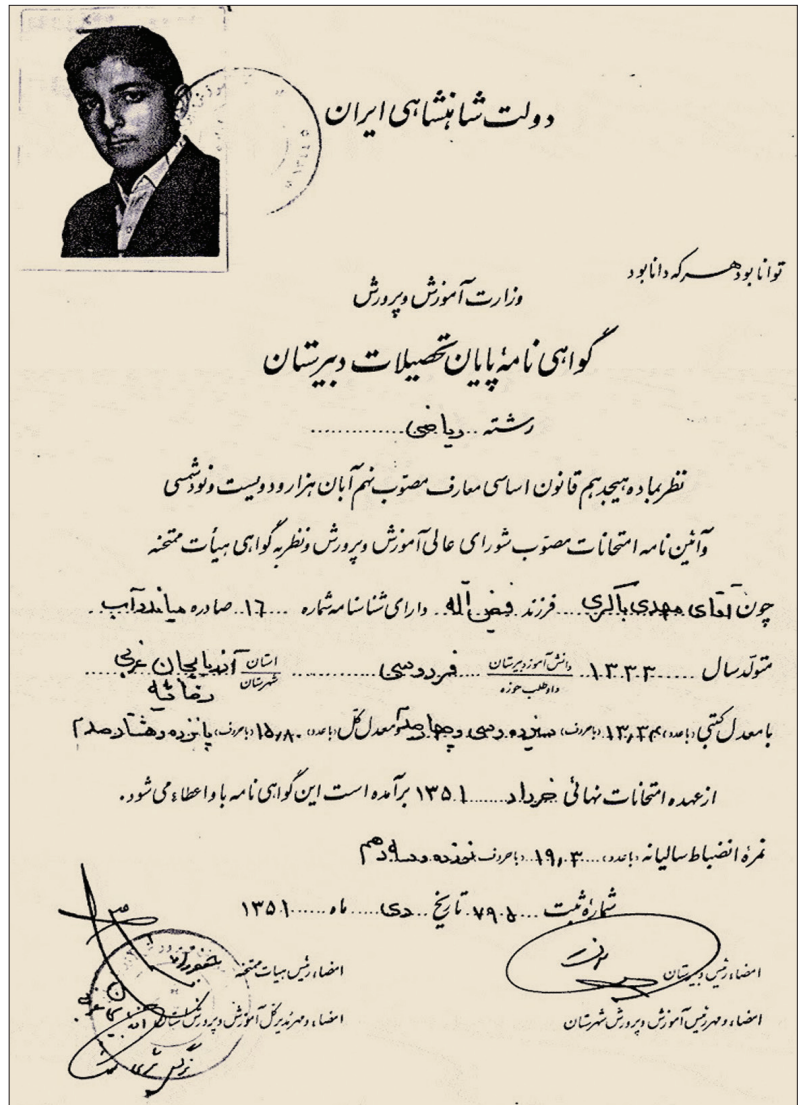 دولت شاهنشاهی ایران
توانا بود هر که دانا بود
وزارت آموزش و پرورش
گواهی نامهٔ پایان تحصیلات دبیرستان
رشته ریاضی
نظر بماده هیجدهم قانون اساسی معارف مصوّب نهم آبان هزار و دویست و نود شمسی
و آئین نامه امتحانات مصوّب شورای عالی آموزش و پرورش و نظر به گواهی هیأت ممتحنه
چون آقای مهدی باکری فرزند فیض اله دارای شناسنامه شماره ۱۶ صادره میاندوآب
متولد سال ۱۳۳۳ دانش آموز دبیرستان فردوسی استان آذربایجان غربی
داوطلب حوزه شهرستان رضائیه
با معدل کتبی (با عدد) ۱۳,۳۴ (با حروف) سیزده و سی و چهار صدم و معدل کل (با عدد) ۱۵,۸۰ (با حروف) پانزده و هشتاد صدم
از عهده امتحانات نهائی خرداد ۱۳۵۱ برآمده است این گواهی نامه باو اعطاء می شود.
نمرهٔ انضباط سالیانه (با عدد) ۱۹,۳ (با حروف) نوزده و سه دهم
شمارهٔ ثبت ۷۹۰۵ تاریخ دی ماه ۱۳۵۱
امضاء رئیس دبیرستان
امضاء رئیس هیات ممتحنه
امضاء و مهر رئیس آموزش و پرورش شهرستان
امضاء و مهر مدیر کل آموزش و پرورش استان